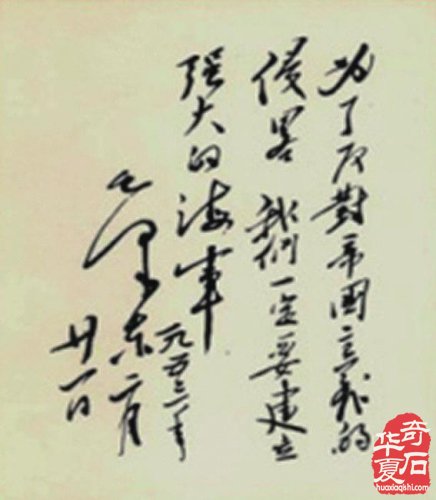 为了反對帝國主義的
侵畧 我們一定要建立
强大的海軍
毛澤东
一九五三年
二月
廿一日
华夏奇石
huaxiaqishi.com